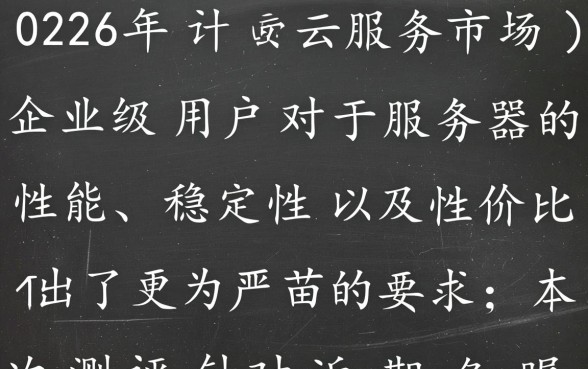 0226年 计 云服务市场 )
企业级 用户 对于服务器的
性能、稳定性 以及性价比
出了更为严苗的要求；本
测评 针对近 期